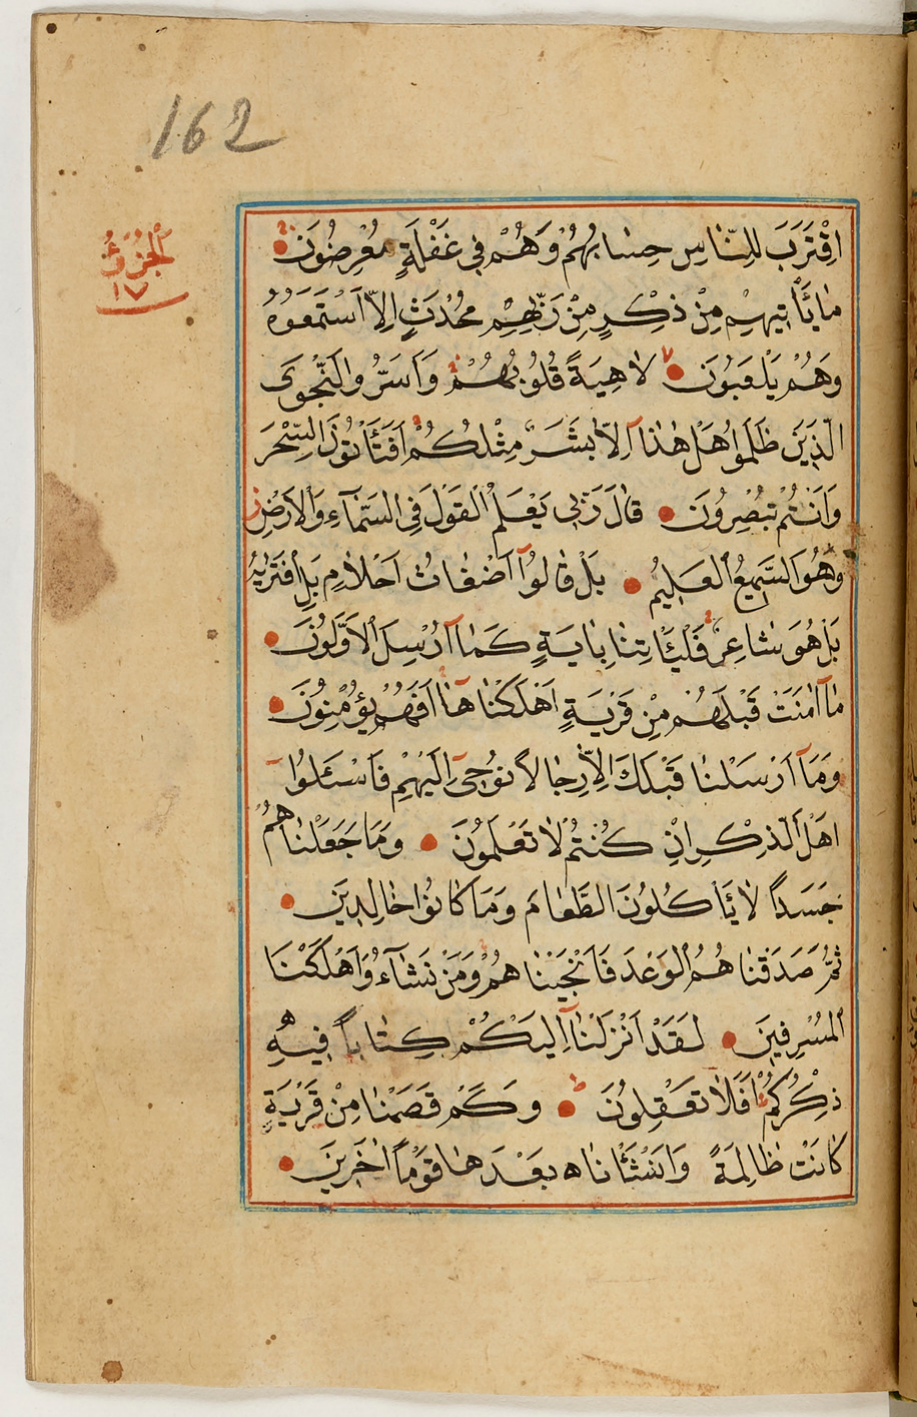 162
الجزؤ
١٧
اِقْتَرَبَ لِلنَّاسِ حِسَابُهُمْ وَهُمْ فِي غَفْلَةٍ مُعْرِضُونَ
مَا يَأْتِيهِمْ مِنْ ذِكْرٍ مِنْ رَبِّهِمْ مُحْدَثٍ اِلَّا اسْتَمَعُوهُ
وَهُمْ يَلْعَبُونَ لَاهِيَةً قُلُوبُهُمْ وَاَسَرُّوا النَّجْوَى
الَّذِينَ ظَلَمُوا هَلْ هٰذَا اِلَّا بَشَرٌ مِثْلُكُمْ اَفَتَأْتُونَ السِّحْرَ
وَاَنْتُمْ تُبْصِرُونَ قَالَ رَبِّي يَعْلَمُ الْقَوْلَ فِي السَّمَآءِ وَالْاَرْضِ ز
وَهُوَ السَّمِيعُ الْعَلِيمُ بَلْ قَالُوآ اَضْغَاثُ اَحْلَامٍ بَلِ افْتَرٰيهُ
بَلْ هُوَ شَاعِرٌ فَلْيَأْتِنَا بِاٰيَةٍ كَمَآ اُرْسِلَ الْاَوَّلُونَ
مَآ اٰمَنَتْ قَبْلَهُمْ مِنْ قَرْيَةٍ اَهْلَكْنَاهَآ اَفَهُمْ يُؤْمِنُونَ
وَمَآ اَرْسَلْنَا قَبْلَكَ اِلَّا رِجَالًا نُوحِيٓ اِلَيْهِمْ فَاسْـَٔلُوآ
اَهْلَ الذِّكْرِ اِنْ كُنْتُمْ لَا تَعْلَمُونَ وَمَا جَعَلْنَاهُمْ
جَسَدًا لَا يَأْكُلُونَ الطَّعَامَ وَمَا كَانُوا خَالِدِينَ
ثُمَّ صَدَقْنَاهُمُ الْوَعْدَ فَاَنْجَيْنَاهُمْ وَمَنْ نَشَآءُ وَاَهْلَكْنَا
الْمُسْرِفِينَ لَقَدْ اَنْزَلْنَآ اِلَيْكُمْ كِتَابًا فِيهِ
ذِكْرُكُمْ اَفَلَا تَعْقِلُونَ ط وَكَمْ قَصَمْنَا مِنْ قَرْيَةٍ
كَانَتْ ظَالِمَةً وَاَنْشَأْنَاه بَعْدَهَا قَوْمًا اٰخَرِينَ